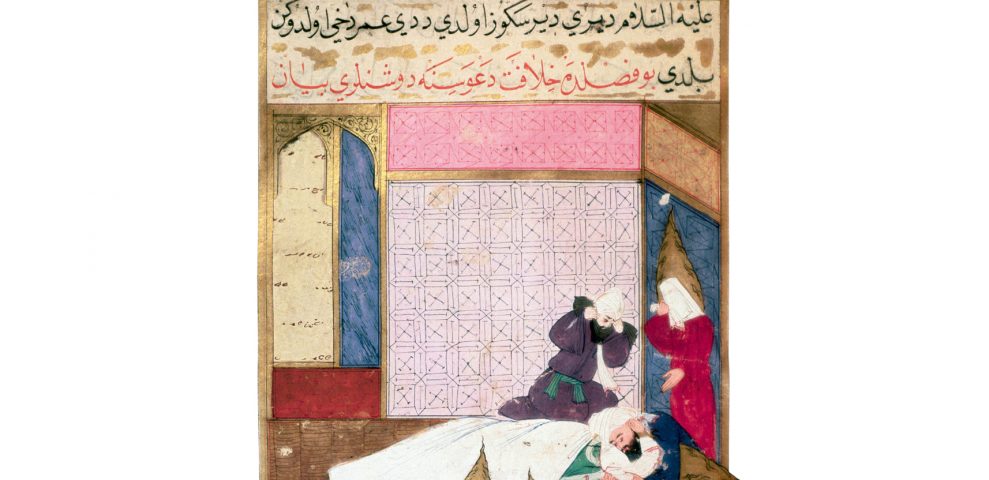 عليه السلام دمري دير سكوز اولدي ددي عمر دخي اولدوكن
بلدي بو فصلده خلافت دعوسنه دوشنلري بيان